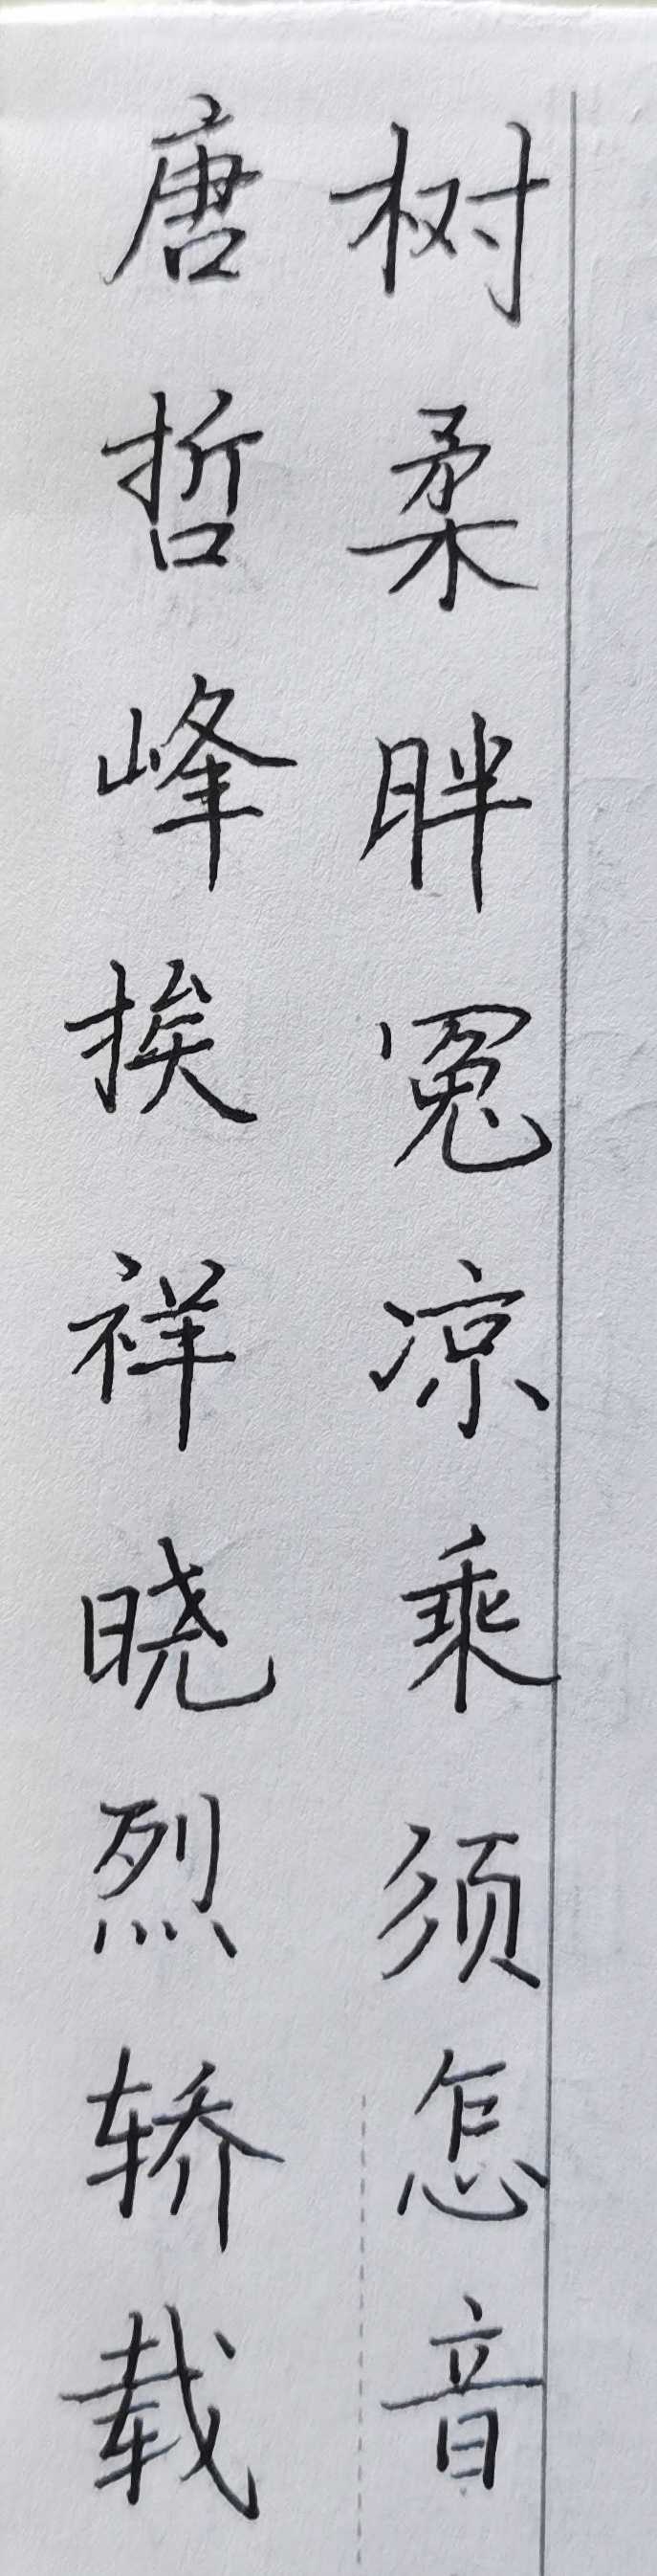 树柔胖冤凉乘须怎音
唐哲峰挨祥晓烈轿载